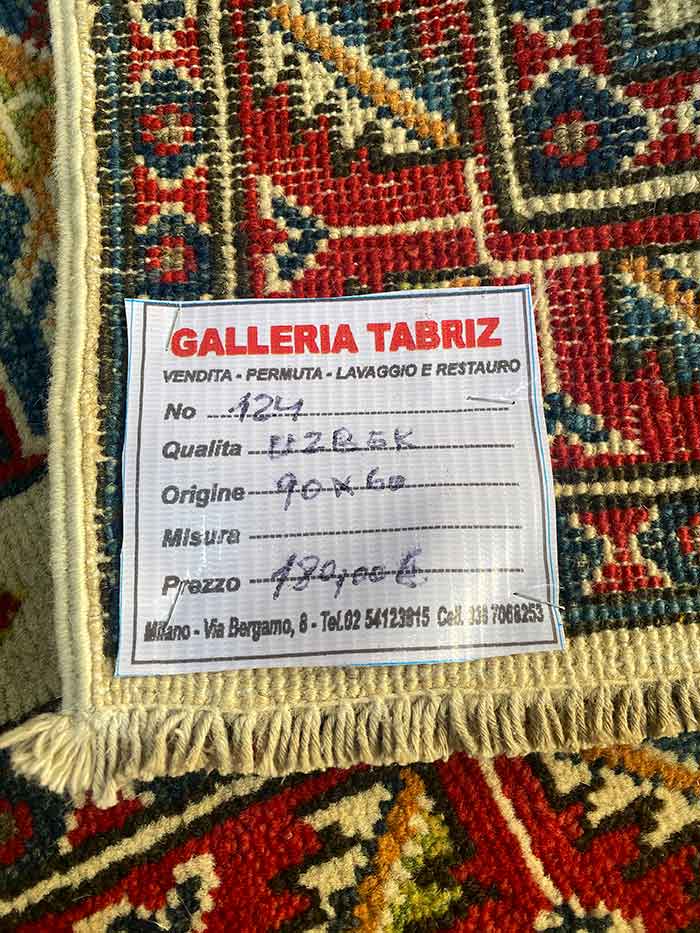 GALLERIA TABRIZ
VENDITA - PERMUTA - LAVAGGIO E RESTAURO
No 124
Qualita UZBEK
Origine 90x60
Misura
Prezzo 180,00 €
Milano - Via Bergamo, 8 - Tel.02 54123915 Cell.